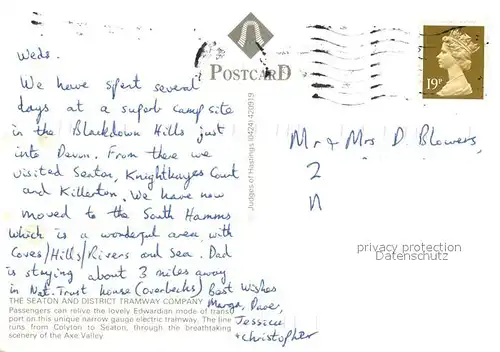 Weds.
We have spent several
days at a superb camp site
in the Blackdown Hills just
into Devon. From there we
visited Seaton, Knightshayes Court
and Killerton. We have now
moved to the South Hamms
which is a wonderful area with
Coves/Hills/Rivers and Sea. Dad
is staying about 3 miles away
in Nat. Trust house (overbecks) Best Wishes
Marga, Dave,
Jessica
+ christopher
THE SEATON AND DISTRICT TRAMWAY COMPANY
Passengers can relive the lovely Edwardian mode of trans
port on this unique narrow gauge electric tramway. The line
runs from Colyton to Seaton, through the breathtaking
scenery of the Axe Valley
POSTCARD
Judges of Hastings (0424) 420919
19P
Mr & Mrs D. Blowers,
2
n
privacy protection
Datenschutz